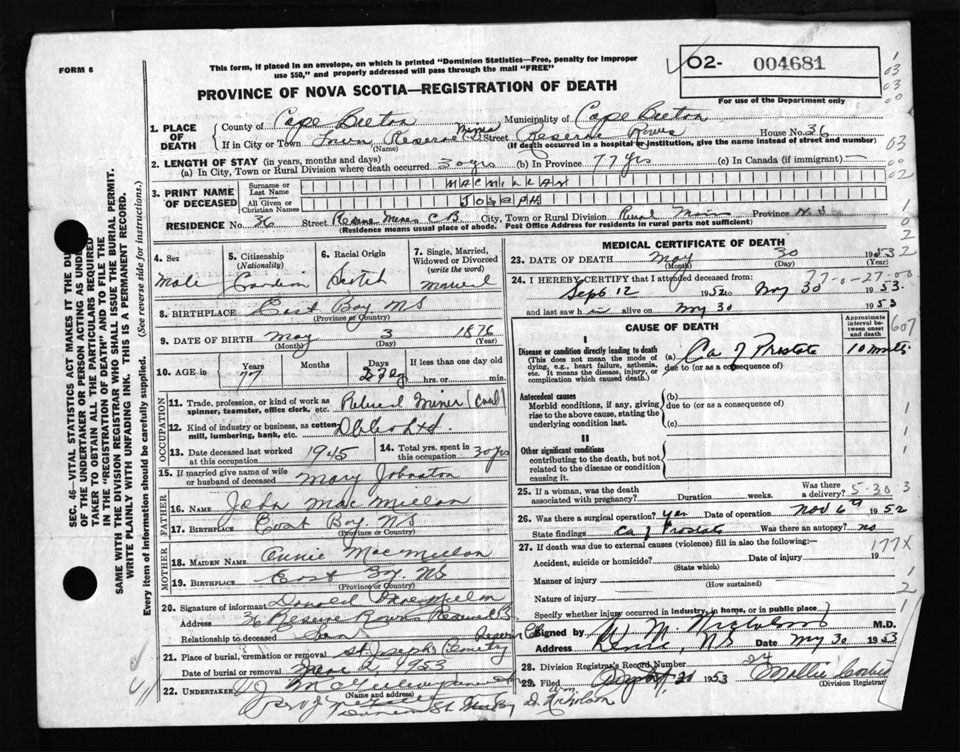 FORM 6
This form, if placed in an envelope, on which is printed "Dominion Statistics—Free, penalty for improper
use $50," and properly addressed will pass through the mail "FREE"
O2- 004681
For use of the Department only
PROVINCE OF NOVA SCOTIA—REGISTRATION OF DEATH
1. PLACE OF DEATH
County of Cape Breton Municipality of Cape Breton
If in City or Town Town Reserve Mines Street Reserve Rows House No. 36
(Name) (If death occurred in a hospital or institution, give the name instead of street and number)
2. LENGTH OF STAY (in years, months and days)
(a) In City, Town or Rural Division where death occurred 30 yrs (b) In Province 77 yrs (c) In Canada (if immigrant) —
3. PRINT NAME OF DECEASED
Surname or Last Name MACMILLAN
All Given or Christian Names JOSEPH
RESIDENCE No. 36 Street Reserve Mines C B City, Town or Rural Division Rural Province N S
(Residence means usual place of abode. Post Office Address for residents in rural parts not sufficient)
4. Sex Male
5. Citizenship (Nationality) Canadian
6. Racial Origin Scotch
7. Single, Married, Widowed or Divorced (write the word) Married
8. BIRTHPLACE East Bay NS
(Province or Country)
9. DATE OF BIRTH May 3 1876
(Month) (Day) (Year)
10. AGE in Years 77 Months Days 27 If less than one day old hrs. or min.
OCCUPATION
11. Trade, profession, or kind of work as spinner, teamster, office clerk, etc. Retired Miner (Coal)
12. Kind of industry or business, as cotton mill, lumbering, bank, etc.
13. Date deceased last worked at this occupation 1945
14. Total yrs. spent in this occupation 30 yrs
15. If married give name of wife or husband of deceased Mary Johnston
FATHER
16. Name John MacMillan
17. Birthplace East Bay NS
MOTHER
18. Maiden Name Annie MacMillan
19. Birthplace East Bay NS
(Province or Country)
20. Signature of informant Donald MacMillan
Address 36 Reserve Rows Reserve
Relationship to deceased Son
21. Place of burial, cremation or removal St. Joseph's Cemetery
Date of burial or removal June 2 1953
22. Undertaker
(Name and address)
MEDICAL CERTIFICATE OF DEATH
23. DATE OF DEATH May 30 1953
(Month) (Day) (Year)
24. I HEREBY CERTIFY that I attended deceased from:
77-0-27-00
Sept 12 1952 to May 30 1953.
and last saw h im alive on May 30 1953
CAUSE OF DEATH
Approximate interval between onset and death
I
Disease or condition directly leading to death (a) Ca of Prostate 10 months
(This does not mean the mode of dying, e.g., heart failure, asthenia, etc. It means the disease, injury, or complication which caused death.)
due to (or as a consequence of)
Antecedent causes
Morbid conditions, if any, giving rise to the above cause, stating the underlying condition last.
(b)
due to (or as a consequence of)
(c)
II
Other significant conditions
contributing to the death, but not related to the disease or condition causing it.
25. If a woman, was the death associated with pregnancy? Duration weeks. Was there a delivery? 5-30-3
26. Was there a surgical operation? yes Date of operation Nov 6 1952
State findings Ca of Prostate Was there an autopsy? no
27. If death was due to external causes (violence) fill in also the following:— 177X
Accident, suicide or homicide? Date of injury 19
(State which)
Manner of injury
(How sustained)
Nature of injury
Specify whether injury occurred in industry, in home, or in public place
Signed by M.D.
Address N S Date May 30 1953
28. Division Registrar's Record Number 24
29. Filed 30 1953 Mollie
(Division Registrar)
Wm D. Nicholson
SEC. 46—VITAL STATISTICS ACT MAKES IT THE DU
OF THE UNDERTAKER OR PERSON ACTING AS UNDE
TAKER TO OBTAIN ALL THE PARTICULARS REQUIRED
IN THE "REGISTRATION OF DEATH" AND TO FILE THE
SAME WITH THE DIVISION REGISTRAR WHO SHALL ISSUE THE BURIAL PERMIT.
WRITE PLAINLY WITH UNFADING INK. THIS IS A PERMANENT RECORD.
Every item of information should be carefully supplied. (See reverse side for instructions.)